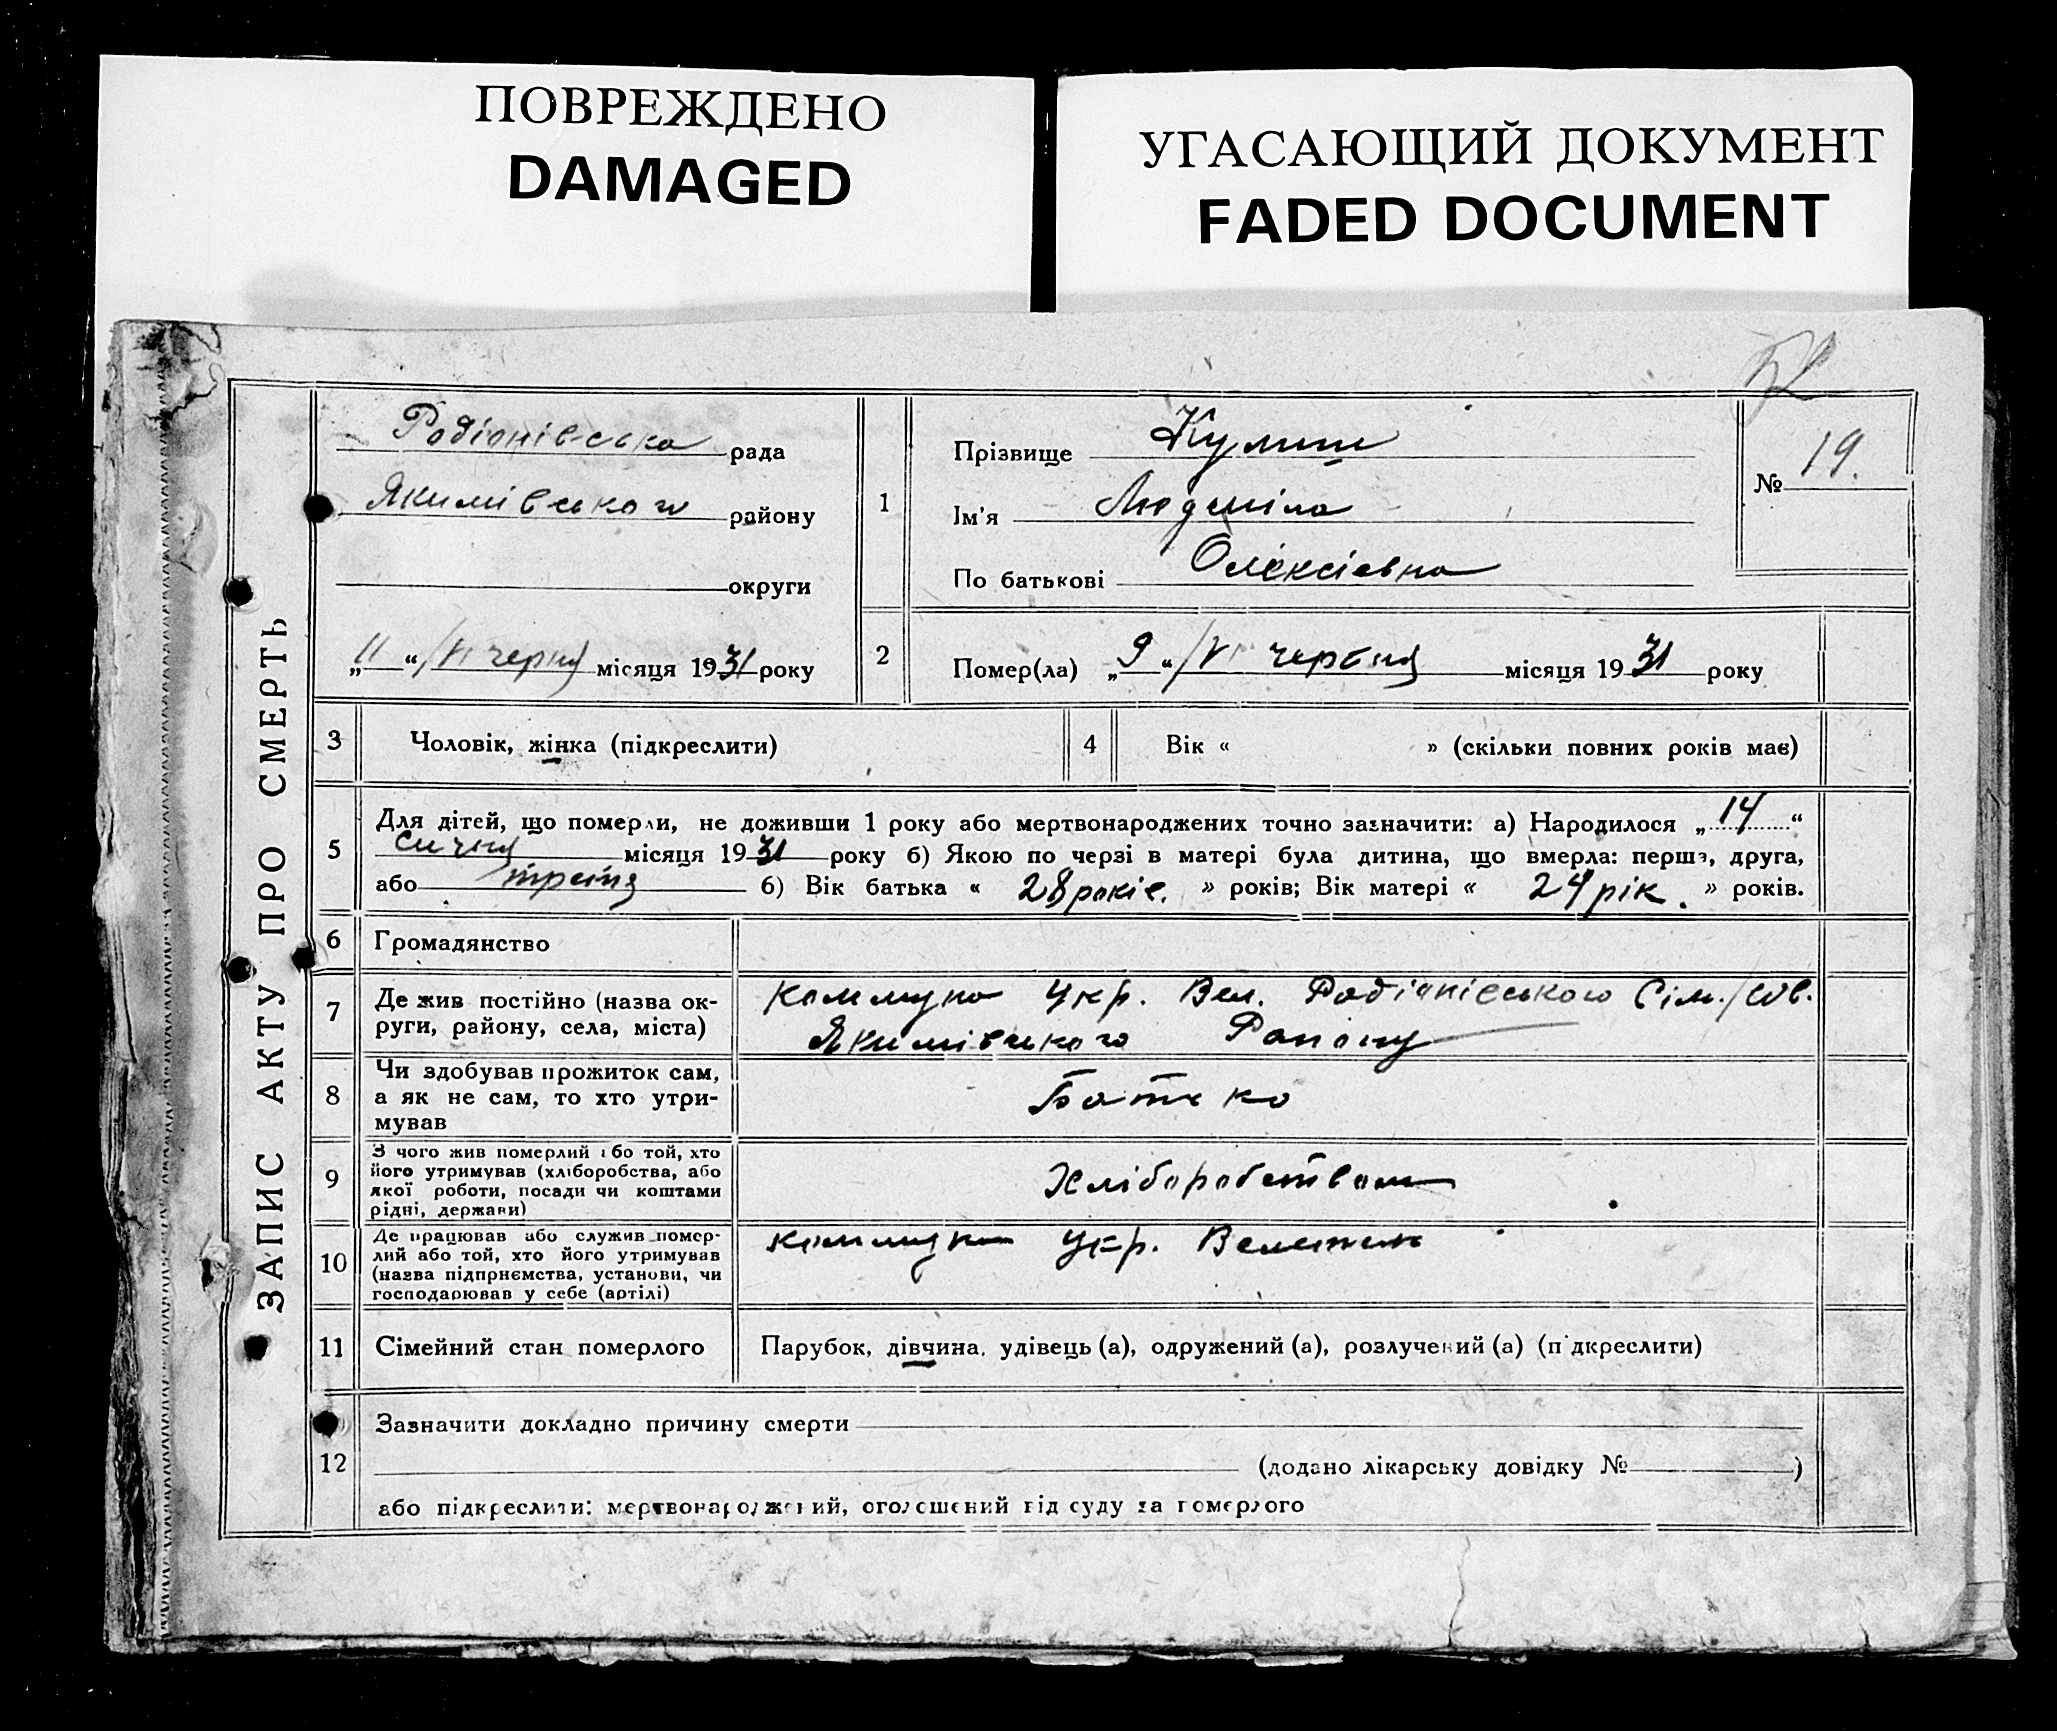 ПОВРЕЖДЕНО
DAMAGED
УГАСАЮЩИЙ ДОКУМЕНТ
FADED DOCUMENT
ЗАПИС АКТУ ПРО СМЕРТЬ
Родіонівська рада
Якимівського району
округи
„11“/VI черня місяця 1931 року
1
Прізвище Кулиш
Ім'я Людміла
По батькові Олексієвна
№ 19.
2 Помер(ла) „9“/VI червня місяця 1931 року
3 Чоловік, жінка (підкреслити)
4 Вік « » (скільки повних років має)
5
Для дітей, що померли, не доживши 1 року або мертвонароджених точно зазначити: а) Народилося „14“
сичня місяця 1931 року б) Якою по черзі в матері була дитина, що вмерла: перша, друга,
або третя б) Вік батька « 28 років. » років; Вік матері « 24 рік. » років.
6 Громадянство
7
Де жив постійно (назва ок-
руги, району, села, міста)
Коммуна Укр. Вел. Родіонівського Сіл./сов.
Якимівського Району
8
Чи здобував прожиток сам,
а як не сам, то хто утри-
мував
Батько
9
З чого жив померлий або той, хто
його утримував (хліборобства, або
якої роботи, посади чи коштами
рідні, держави)
Хліборобством
10
Де працював або служив помер-
лий або той, хто його утримував
(назва підприємства, установи, чи
господарював у себе (артілі)
коммуна Укр.
11 Сімейний стан померлого
Парубок, дівчина, удівець (а), одружений (а), розлучений (а) (підкреслити)
12
Зазначити докладно причину смерти
(додано лікарську довідку № )
або підкреслити: мертвонароджений, оголошений від суду за померлого